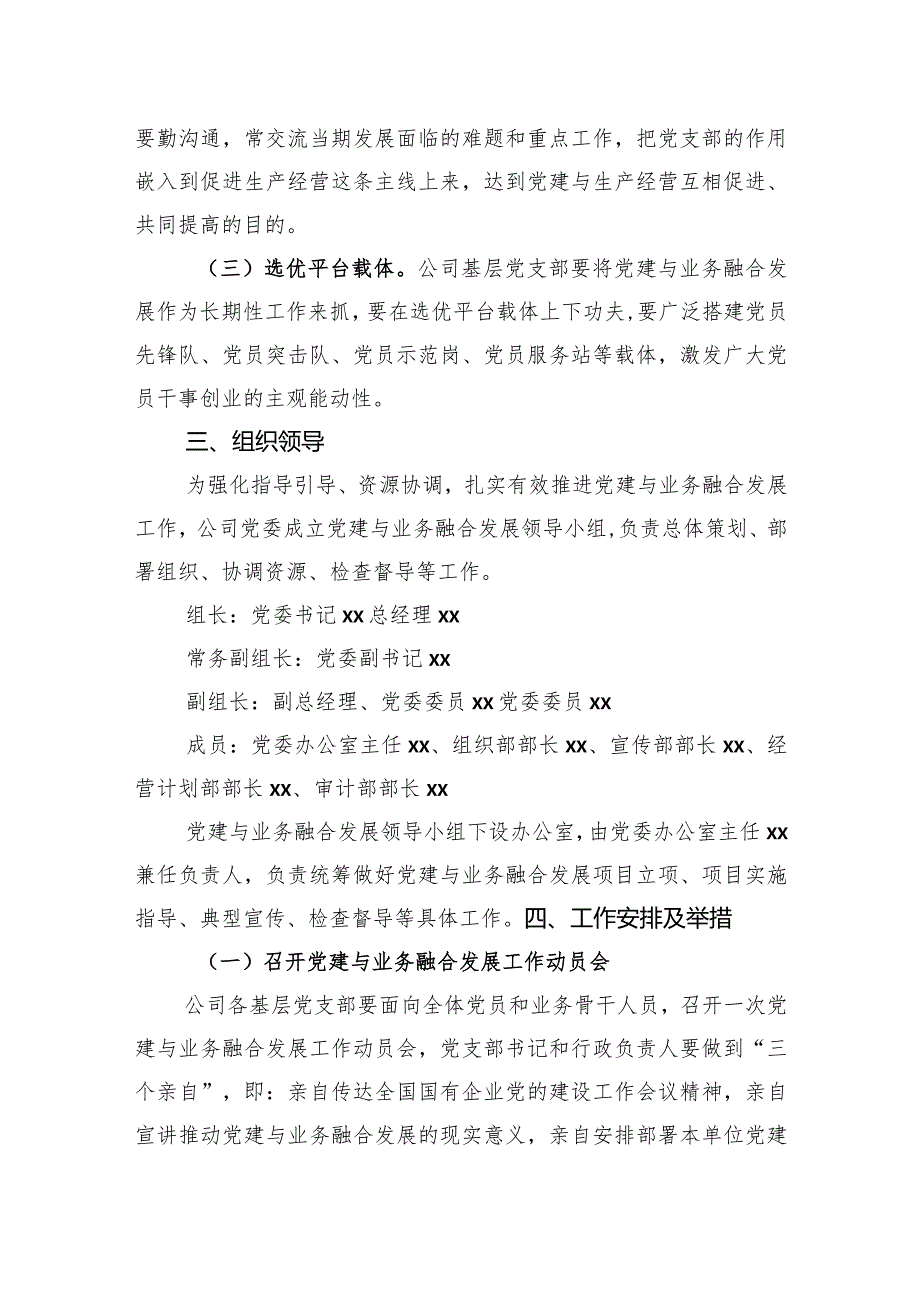 要勤沟通，常交流当期发展面临的难题和重点工作，把党支部的作用
嵌入到促进生产经营这条主线上来，达到党建与生产经营互相促进、
共同提高的目的。
（三）选优平台载体。公司基层党支部要将党建与业务融合发
展作为长期性工作来抓，要在选优平台载体上下功夫,要广泛搭建党员
先锋队、党员突击队、党员示范岗、党员服务站等载体，激发广大党
员干事创业的主观能动性。
三、组织领导
为强化指导引导、资源协调，扎实有效推进党建与业务融合发展
工作，公司党委成立党建与业务融合发展领导小组,负责总体策划、部
署组织、协调资源、检查督导等工作。
组长：党委书记xx总经理xx
常务副组长：党委副书记xx
副组长：副总经理、党委委员xx党委委员xx
成员：党委办公室主任xx、组织部部长xx、宣传部部长xx、经
营计划部部长xx、审计部部长xx
党建与业务融合发展领导小组下设办公室，由党委办公室主任xx
兼任负责人，负责统筹做好党建与业务融合发展项目立项、项目实施
指导、典型宣传、检查督导等具体工作。四、工作安排及举措
（一）召开党建与业务融合发展工作动员会
公司各基层党支部要面向全体党员和业务骨干人员，召开一次党
建与业务融合发展工作动员会，党支部书记和行政负责人要做到“三
个亲自”，即：亲自传达全国国有企业党的建设工作会议精神，亲自
宣讲推动党建与业务融合发展的现实意义，亲自安排部署本单位党建